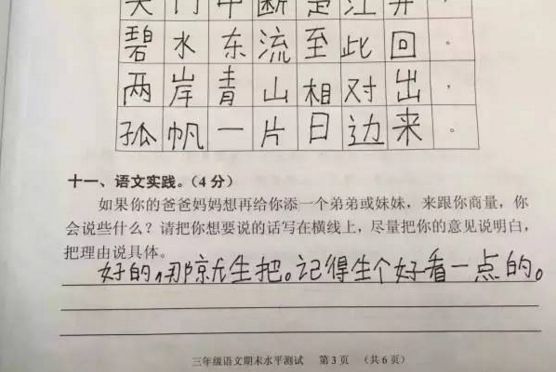 天门中断楚江开
碧水东流至此回。
两岸青山相对出，
孤帆一片日边来。
十一、语文实践。（4分）
如果你的爸爸妈妈想再给你添一个弟弟或妹妹，来跟你商量，你
会说些什么？请把你想要说的话写在横线上，尽量把你的意见说明白，
把理由说具体。
好的，那就生把。记得生个好看一点的。
三年级语文期末水平测试 第3页 （共6页）